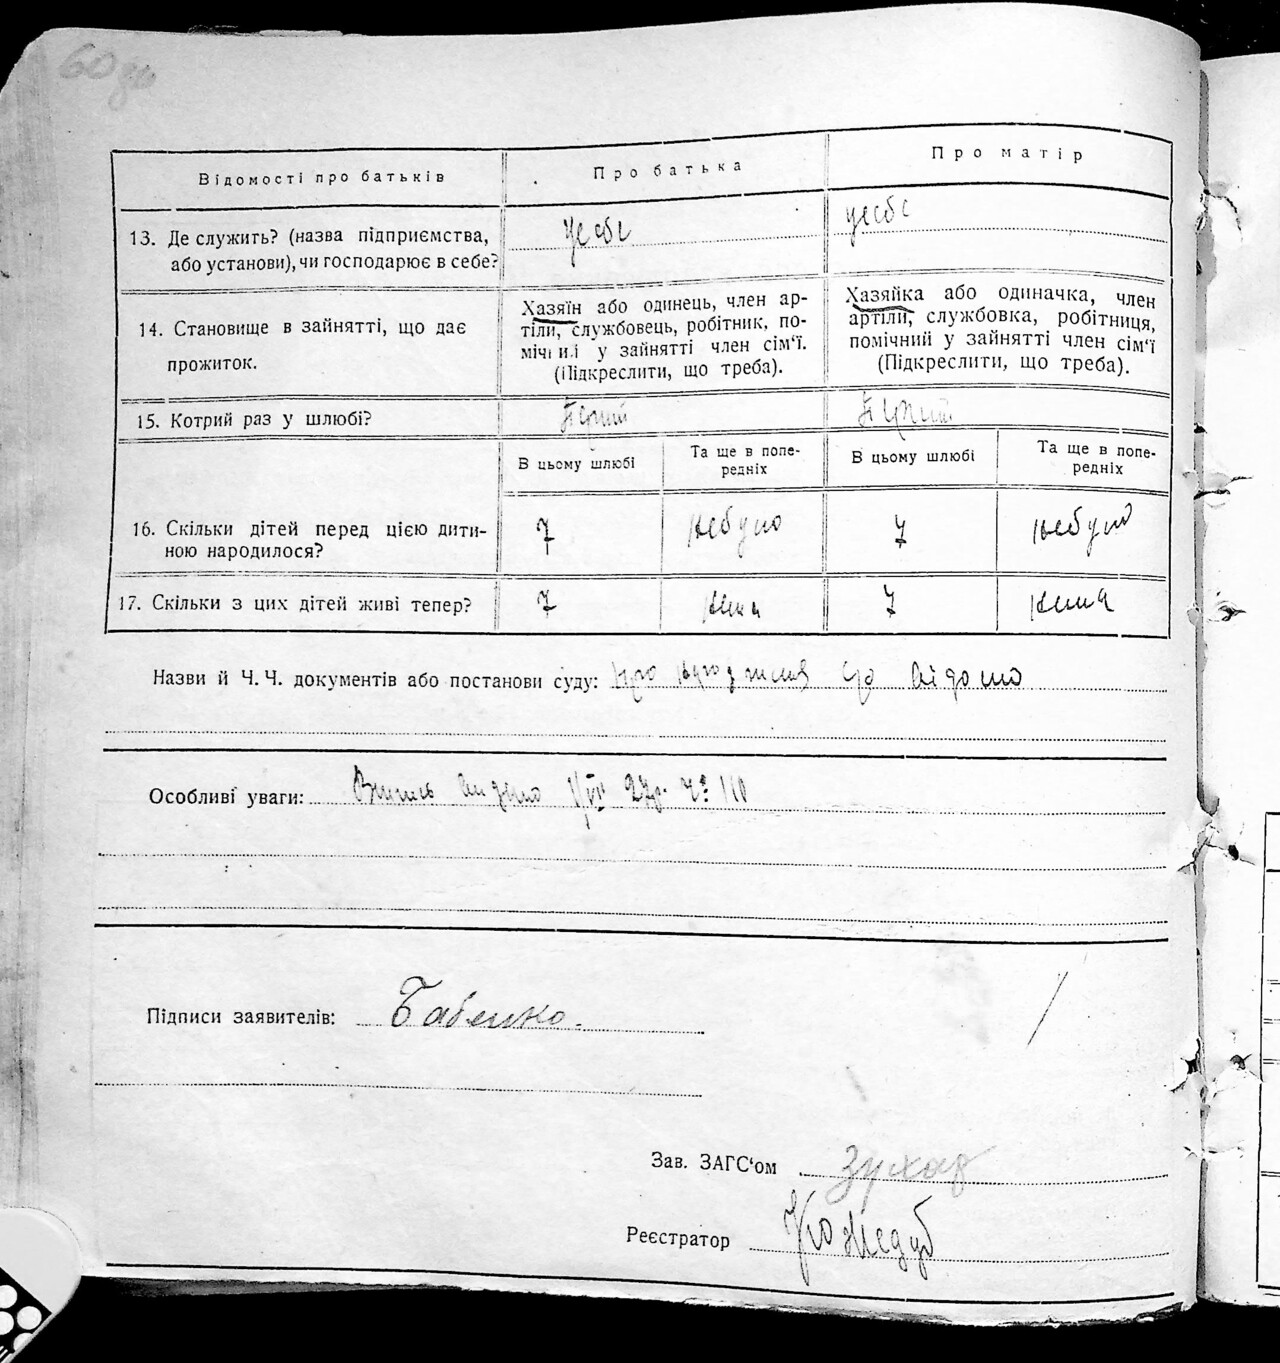 Відомості про батьків
Про батька
Про матір
13. Де служить? (назва підприємства,
або установи), чи господарює в себе?
усебе
усебе
14. Становище в зайнятті, що дає
прожиток.
Хазяїн або одинець, член ар-
тіли, службовець, робітник, по-
мічний у зайнятті член сім'ї.
(Підкреслити, що треба).
Хазяйка або одиначка, член
артіли, службовка, робітниця,
помічний у зайнятті член сім'ї
(Підкреслити, що треба).
15. Котрий раз у шлюбі?
В цьому шлюбі
Та ще в попе-
редніх
В цьому шлюбі
Та ще в попе-
редніх
16. Скільки дітей перед цією дити-
ною народилося?
7
небуло
7
небуло
17. Скільки з цих дітей живі тепер?
7
нема
7
нема
Назви й Ч. Ч. документів або постанови суду:
Особливі уваги: видано 27р. 110
Підписи заявителів: Бабенко.
Зав. ЗАГС'ом
Реєстратор Кожедуб